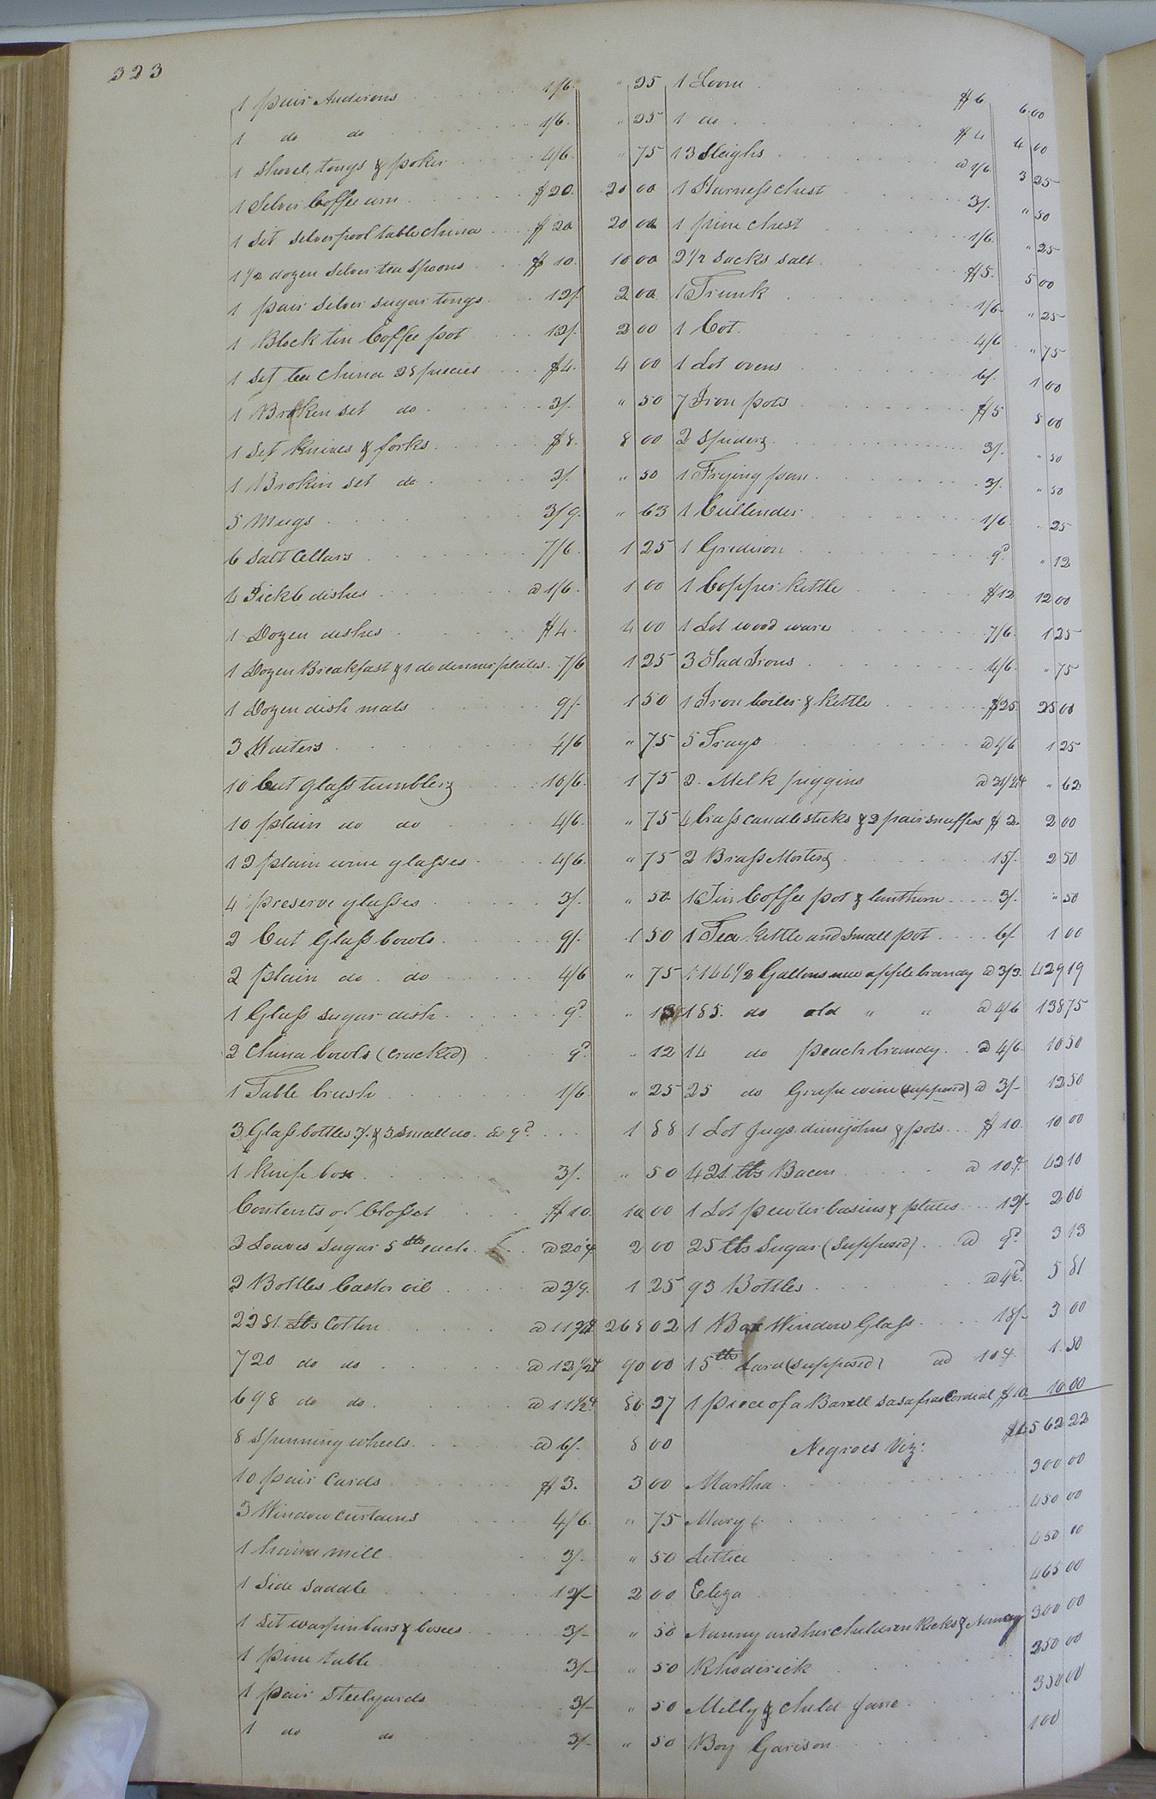 323
1 pair Andirons 1/6 " 25
1 do do 1/6 " 25
1 Shovel, tongs & poker 4/6 " 75
1 Silver Coffee urn $20. 20 00
1 Set Liverpool table China $20 20 00
1 1/2 dozen Silver tea Spoons $10. 10 00
1 pair Silver sugar tongs 12/. 2 00
1 Block tin Coffee pot 12/. 2 00
1 Set tea China 28 pieces $4. 4 00
1 Broken set do 3/. " 50
1 Set Knives & forks $8. 8 00
1 Broken set do 3/. " 50
5 Mugs 3/9. " 63
6 Salt Cellars 7/6. 1 25
4 Pickle dishes @ 1/6. 1 00
1 Dozen dishes $4. 4 00
1 Dozen Breakfast & 1 do dinner plates. 7/6 1 25
1 Dozen dish mats 9/. 1 50
3 Waiters 4/6 " 75
10 Cut glass tumblers 10/6. 1 75
10 plain do do 4/6. " 75
12 plain wine glasses 4/6. " 75
4 preserve glasses 3/. " 50
2 Cut Glass bowls 9/. 1 50
2 plain do. do 4/6 " 75
1 Glass sugar dish 9d. " 13
2 China bowls (cracked) 9d. " 12
1 Table brush 1/6. " 25
3 Glass bottles 3/. & 3 small do. @ 9d. 1 88
1 Knife box 3/. " 50
Contents of Closset $10. 10 00
2 Loaves Sugar 5 lbs each @ 20¢ 2 00
2 Bottles Castor oil @ 3/9. 1 25
2281 lbs Cotton @ 11 3/4¢ 268 02
720 do do @ 12 1/2¢ 90 00
698 do do @ 11 1/2¢ 80 27
8 Spinning wheels @ 6/. 8 00
10 pair Cards $3. 3 00
3 Window curtains 4/6. " 75
1 mill 3/. " 50
1 Side Saddle 12/- 2 00
1 Set warpin bars & boxes 3/- " 50
1 Pine table 3/- " 50
1 pair Steelyards 3/- " 50
1 do do 3/- " 50
1 Loom $6 6.00
1 do $4 4 00
13 Sleighs @ 1/6 3 25
1 Harness chest 3/. " 50
1 pine chest 1/6. " 25
2 1/2 sacks salt $5. 5 00
1 Trunk 1/6 " 25
1 Cot 4/6 " 75
1 Lot ovens 6/. 1 00
7 Iron pots $5 5 00
2 Spiders 3/. " 50
1 Frying pan 3/. " 50
1 Cullender 1/6. " 25
1 Gredieon 9d " 12
1 Copper Kettle $12 12 00
1 Lot wood ware 7/6. 1 25
3 Sad Irons 4/6. " 75
1 Iron boiler & Kettle $25 25 00
5 Trays @ 1/6 1 25
2. Melk piggins @ 31 1/4¢ " 62
4 brass candlesticks & 2 pair snuffers $2. 2 00
2 Brass Morters 15/. 2 50
1 Tin Coffee pot & lanthorn 3/. " 50
1 Tea Kettle and small pot 6/. 1 00
1144 1/2 Gallons new apple brandy @ 3/3. 429 19
185. do old " " @ 4/6 138 75
14 do peach brandy @ 4/6. 10 50
25 do Grape wine (supposed) @ 3/- 12 50
1 Lot Jugs. dimijohns & pots $10. 10 00
421 lbs Bacon @ 10¢. 42 10
1 Lot pewter basins & plates 12/- 2 00
25 lbs Sugar (Supposed) @ 9d. 3 13
93 Bottles @ 4 1/2d. 5 81
1 Box Window Glass 18/- 3 00
15 lbs Lard (supposed) @ 10¢. 1. 50
1 piece of a Barell sasafras Cordial $10. 10 00
$4562 22
Negroes Viz:
Martha 300 00
Mary 450 00
Lettice 450 00
Eliza 465 00
Nanny and her children Ricks & Nancy 300 00
Rhoderick 250 00
Milly & child Jane 350 00
Boy Garison 100